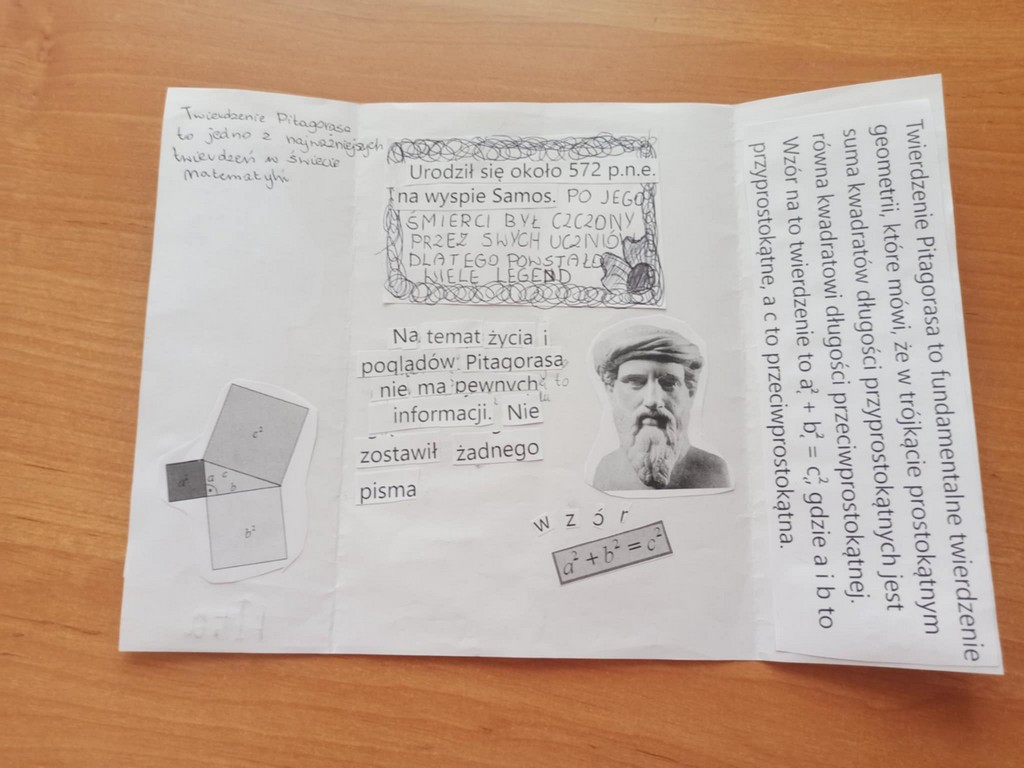 Twierdzenie Pitagorasa
to jedno z najważniejszych
twierdzeń w świecie
matematyki
a²
c²
a
c
b
b²
Urodził się około 572 p.n.e.
na wyspie Samos. PO JEGO
ŚMIERCI BYŁ CZCZONY
PRZEZ SWYCH UCZNIÓW
DLATEGO POWSTAŁO
WIELE LEGEND
Na temat życia i
poglądów Pitagorasa
nie ma pewnych
informacji. Nie
zostawił żadnego
pisma
wzór
a² + b² = c²
Twierdzenie Pitagorasa to fundamentalne twierdzenie
geometrii, które mówi, że w trójkącie prostokątnym
suma kwadratów długości przyprostokątnych jest
równa kwadratowi długości przeciwprostokątnej.
Wzór na to twierdzenie to a² + b² = c², gdzie a i b to
przyprostokątne, a c to przeciwprostokątna.